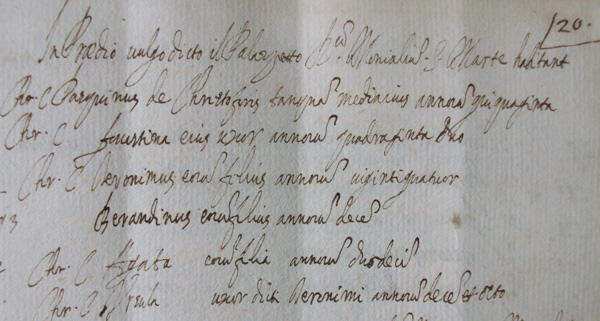 120.
In Predio vulgo dicto il Palazzetto Monialiu S. Marte habitant
Chr. C Pasquinus de Christofiris tanqua mediarius annorũ quiquaginta
Chr. C faustina eius uxor annorũ quadraginta duo
Chr. C Ieronimus eorũ filius annorũ viginti quatuor
Berardinus eorũ filius annorũ dece
Chr. C Agata eorũ filia annorũ duodeci
Chr. C Ursula uxor dicti Ieronimi annorũ dece et octo